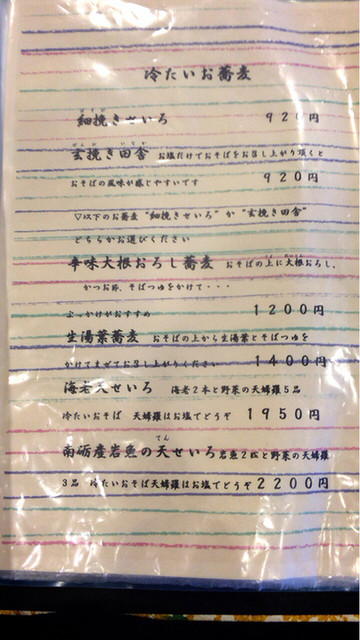 冷たいお蕎麦
細挽きせいろ 920円
玄挽き田舎 お塩だけでおそばをお召し上がり頂くと
おそばの風味が感じやすいです 920円
▽以下のお蕎麦“細挽きせいろ”か“玄挽き田舎”
どちらかお選びください
辛味大根おろし蕎麦 おそばの上に大根おろし、
かつお節、そばつゆをかけて・・・
ぶっかけがおすすめ 1200円
生湯葉蕎麦 おそばの上から生湯葉とそばつゆを
かけてまぜてお召し上がりください 1400円
海老天せいろ 海老2本と野菜の天婦羅5品
冷たいおそば 天婦羅はお塩でどうぞ 1950円
南砺産岩魚の天せいろ 岩魚2匹と野菜の天婦羅
3品 冷たいおそば天婦羅はお塩でどうぞ 2200円